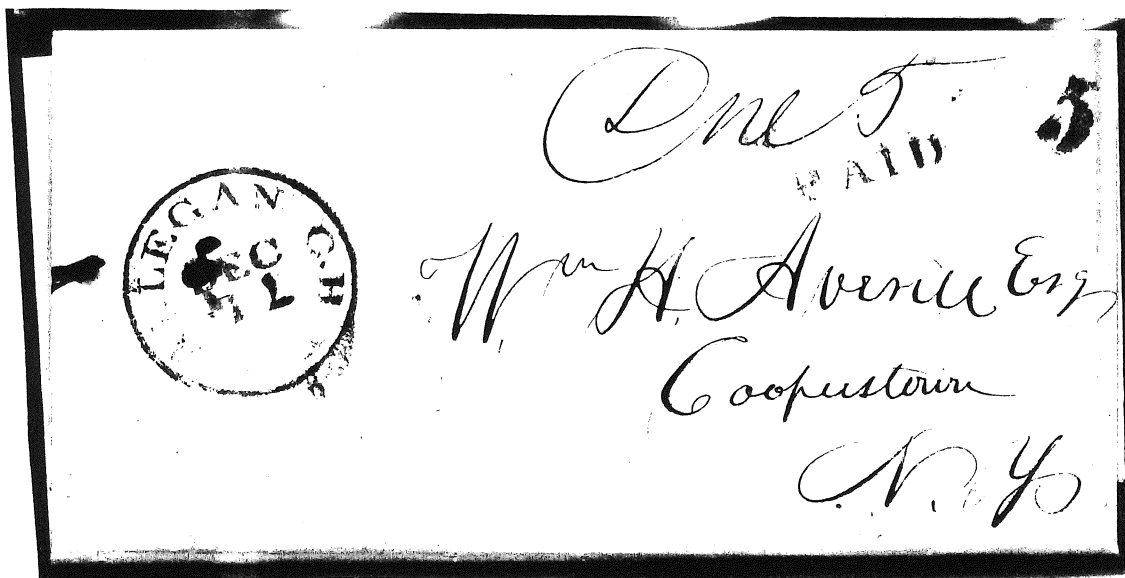 Due 5
5
PAID
LEGAN C.H
Wm H. Averill Esq
Cooperstown
N. Y